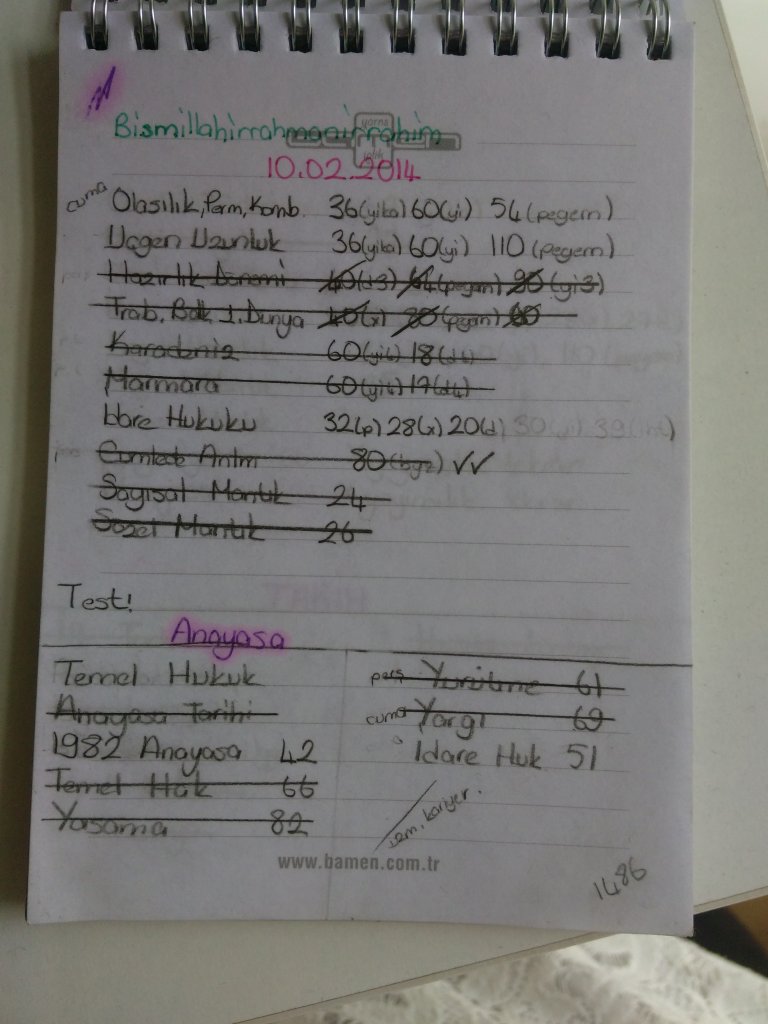 Bismillahirrahmaairrahim
10.02.2014
cuma Olasılık, Perm, Komb. 36(yika) 60(yi) 54(pegem)
Üçgen Uzunluk 36(yika) 60(yi) 110(pegem)
Hazırlık Dönemi 40(d3) 64(pegem) 90(yi3)
Trab. Balk 1. Dünya 40(x) 80(pegem) 60
Karadeniz 60(yi4) 18(d4)
Marmara 60(yi4) 17(d4)
İdare Hukuku 32(p) 28(x) 20(d) 30(yi) 39(int)
Cümlede Anlm 80(byz) ✓✓
Sayısal Mantık 24
Sözel Mantık 26
Test!
Anayasa
Temel Hukuk
Anayasa Tarihi
1982 Anayasa 42
Temel Hak 66
Yasama 82
perş Yürütme 61
cuma Yargı 69
İdare Huk 51
kariyer.
www.bamen.com.tr
1486